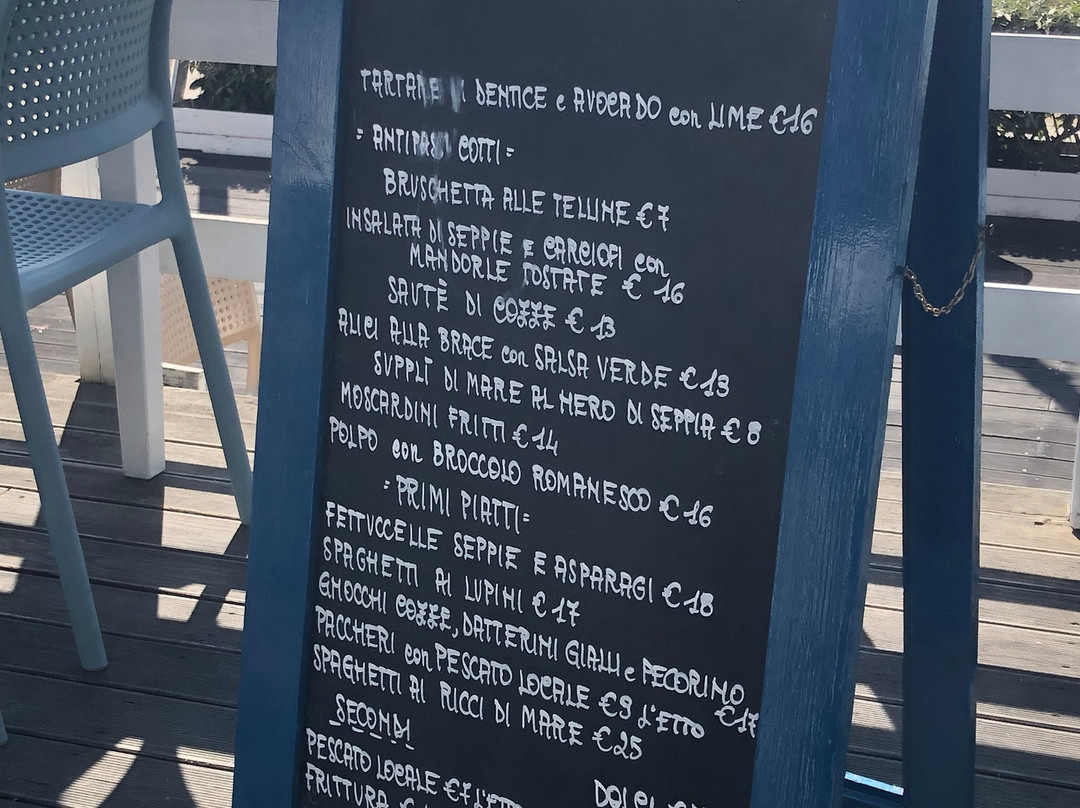 TARTARE DI DENTICE e AVOCADO con LIME €16
= ANTIPASTI COTTI =
BRUSCHETTA ALLE TELLINE €7
INSALATA DI SEPPIE E CARCIOFI con
MANDORLE TOSTATE € 16
SAUTÈ DI COZZE € 13
ALICI ALLA BRACE con SALSA VERDE €13
SUPPLÌ DI MARE AL NERO DI SEPPIA € 8
MOSCARDINI FRITTI € 14
POLPO con BROCCOLO ROMANESCO € 16
= PRIMI PIATTI =
FETTUCCELLE SEPPIE E ASPARAGI € 18
SPAGHETTI AI LUPINI € 17
GNOCCHI COZZE, DATTERINI GIALLI e PECORINO
€17
PACCHERI con PESCATO LOCALE €9 L'ETTO
SPAGHETTI AI RICCI DI MARE €25
SECONDI
PESCATO LOCALE €7 L'ETTO
FRITTURA €
DOLCI